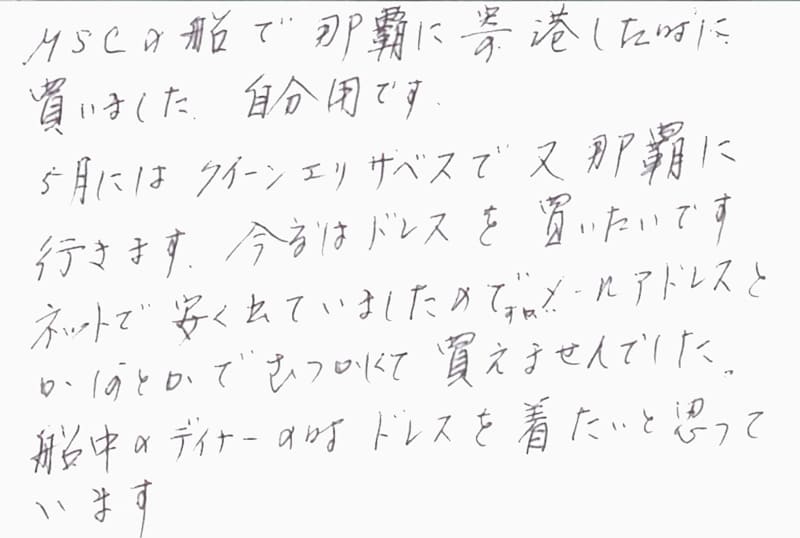 MSCの船で那覇に寄港した時に
買いました 自分用です.
5月にはクイーンエリザベスで又那覇に
行きます. 今度はドレスを買いたいです
ネットで安く出ていましたのでメールアドレスと
かでむつかしくて買えませんでした。
船中のディナーの時ドレスを着たいと思って
います